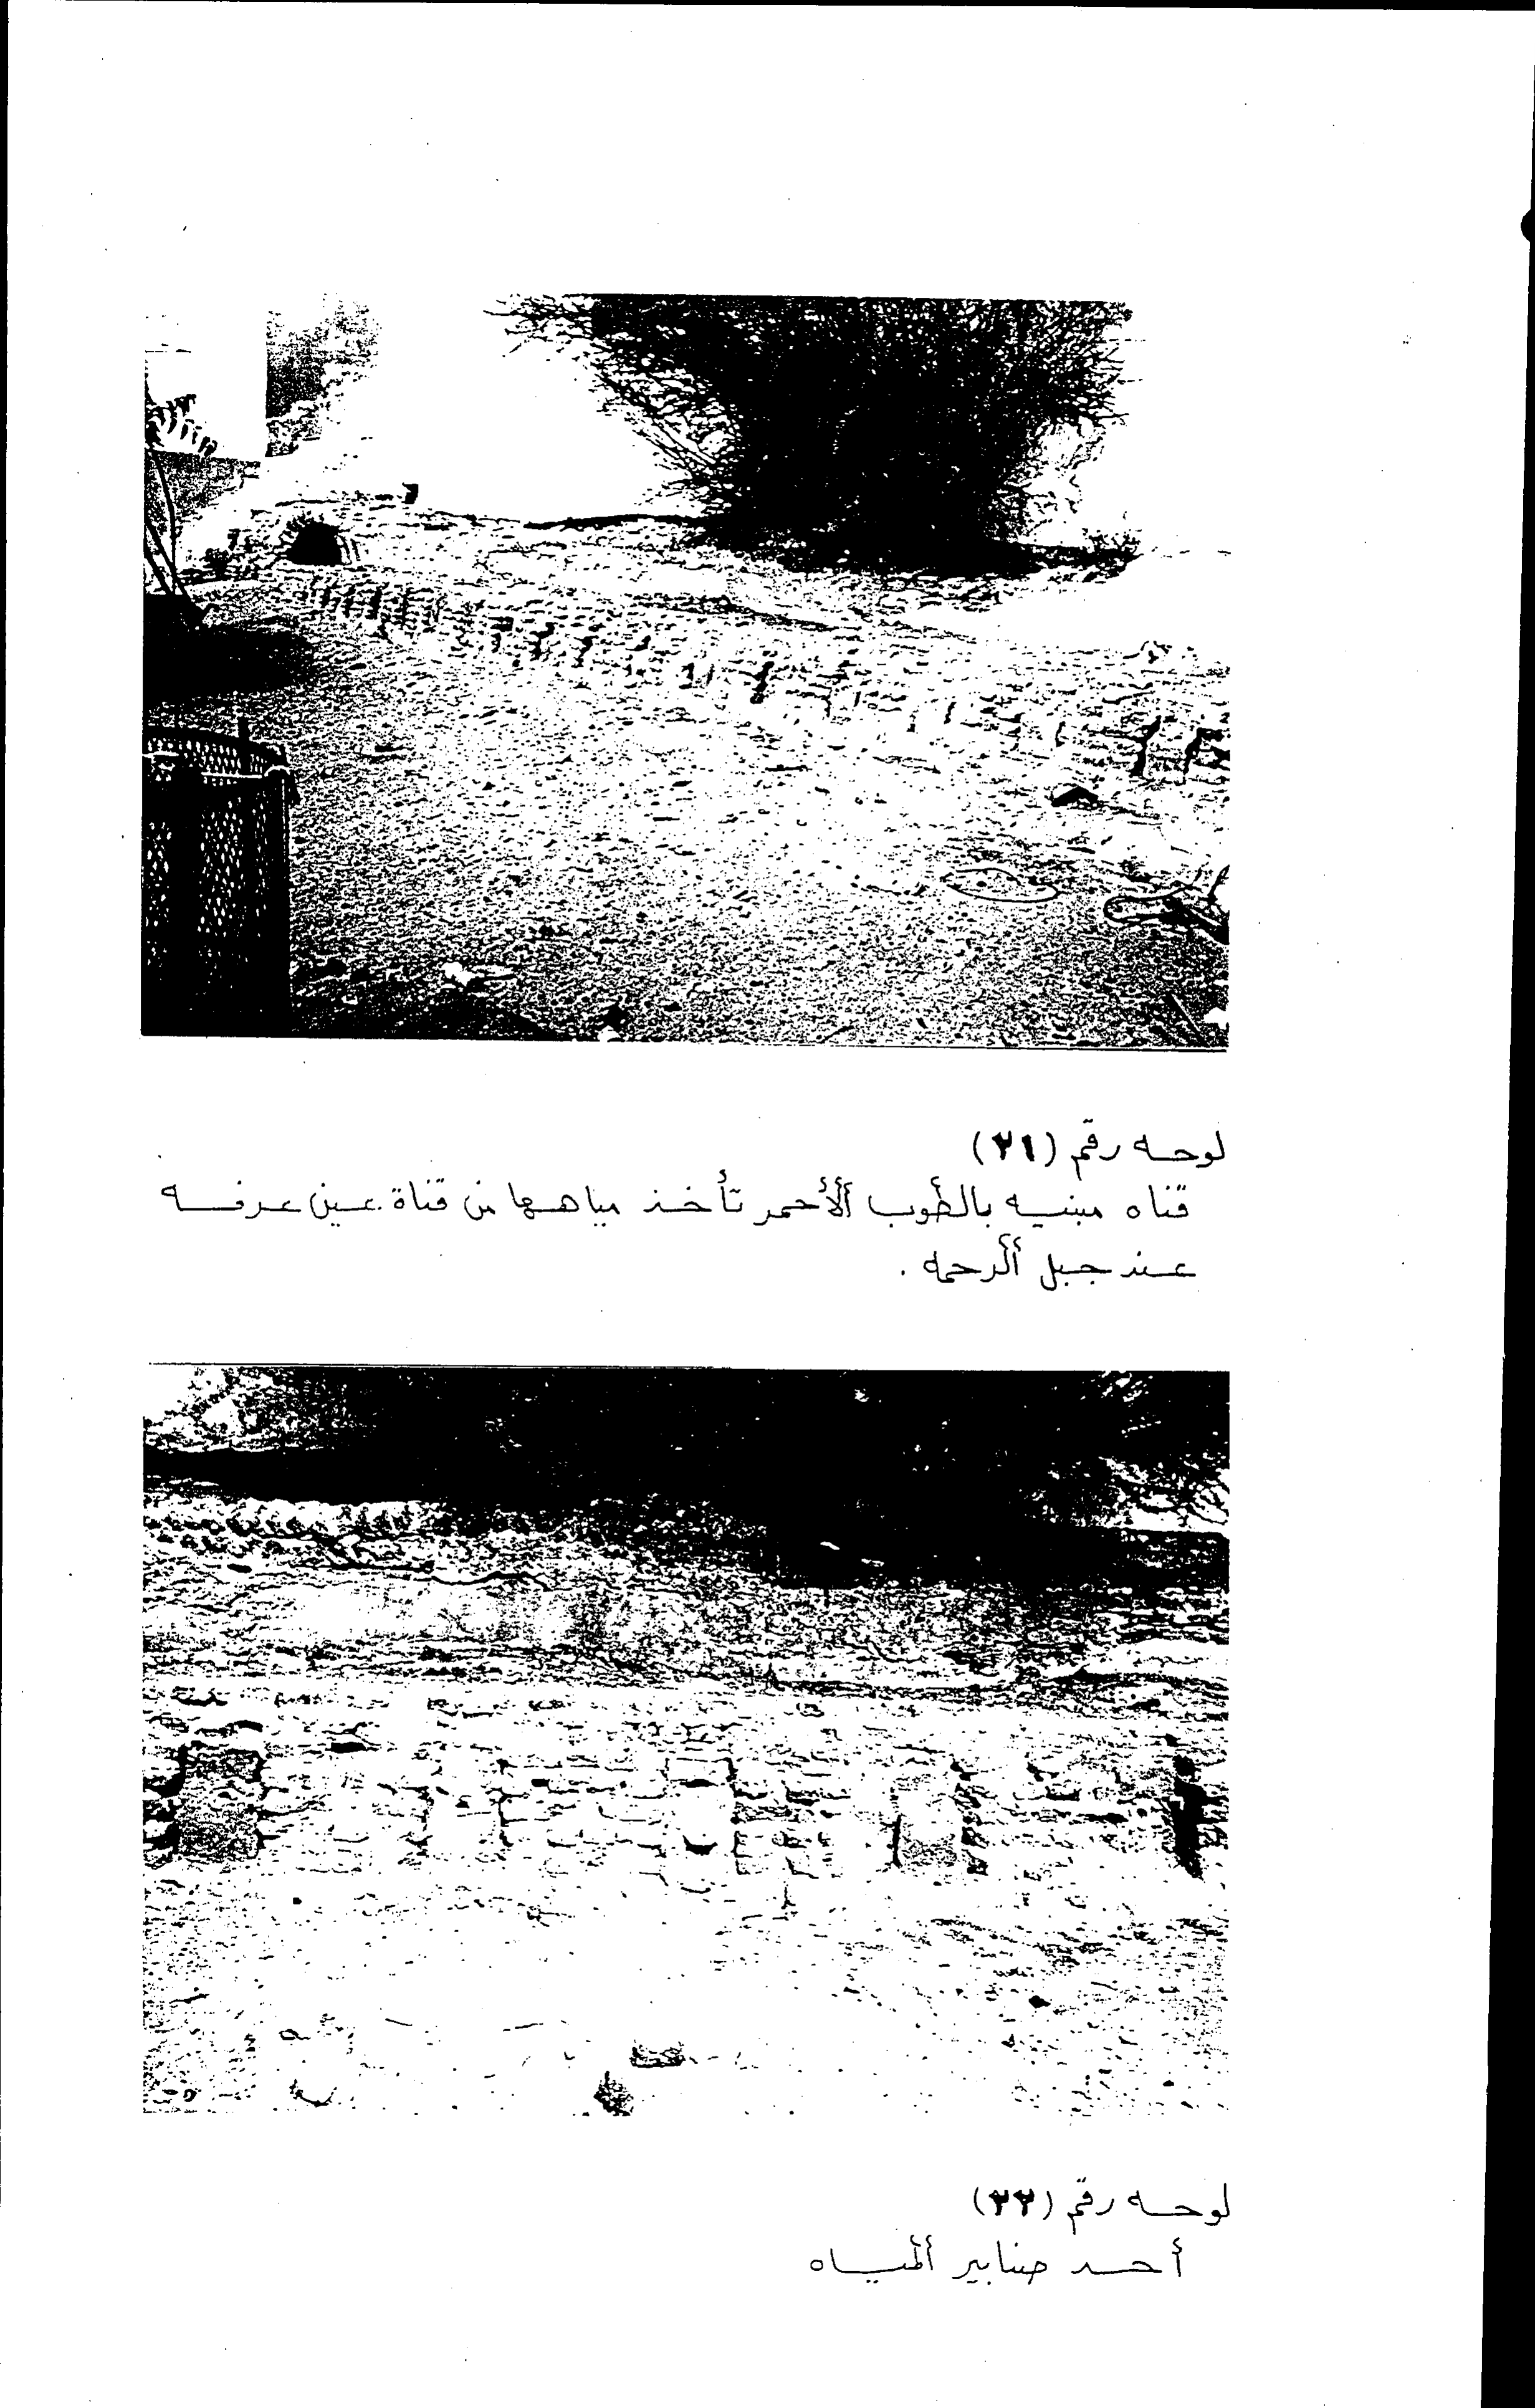 لوحه رقم (٢١)
قناه مبنيه بالطوب الأحمر تأخذ مياهها من قناة عين عرفه
عند جبل الرحمه .
لوحه رقم (٢٢)
أحد صنابير المياه